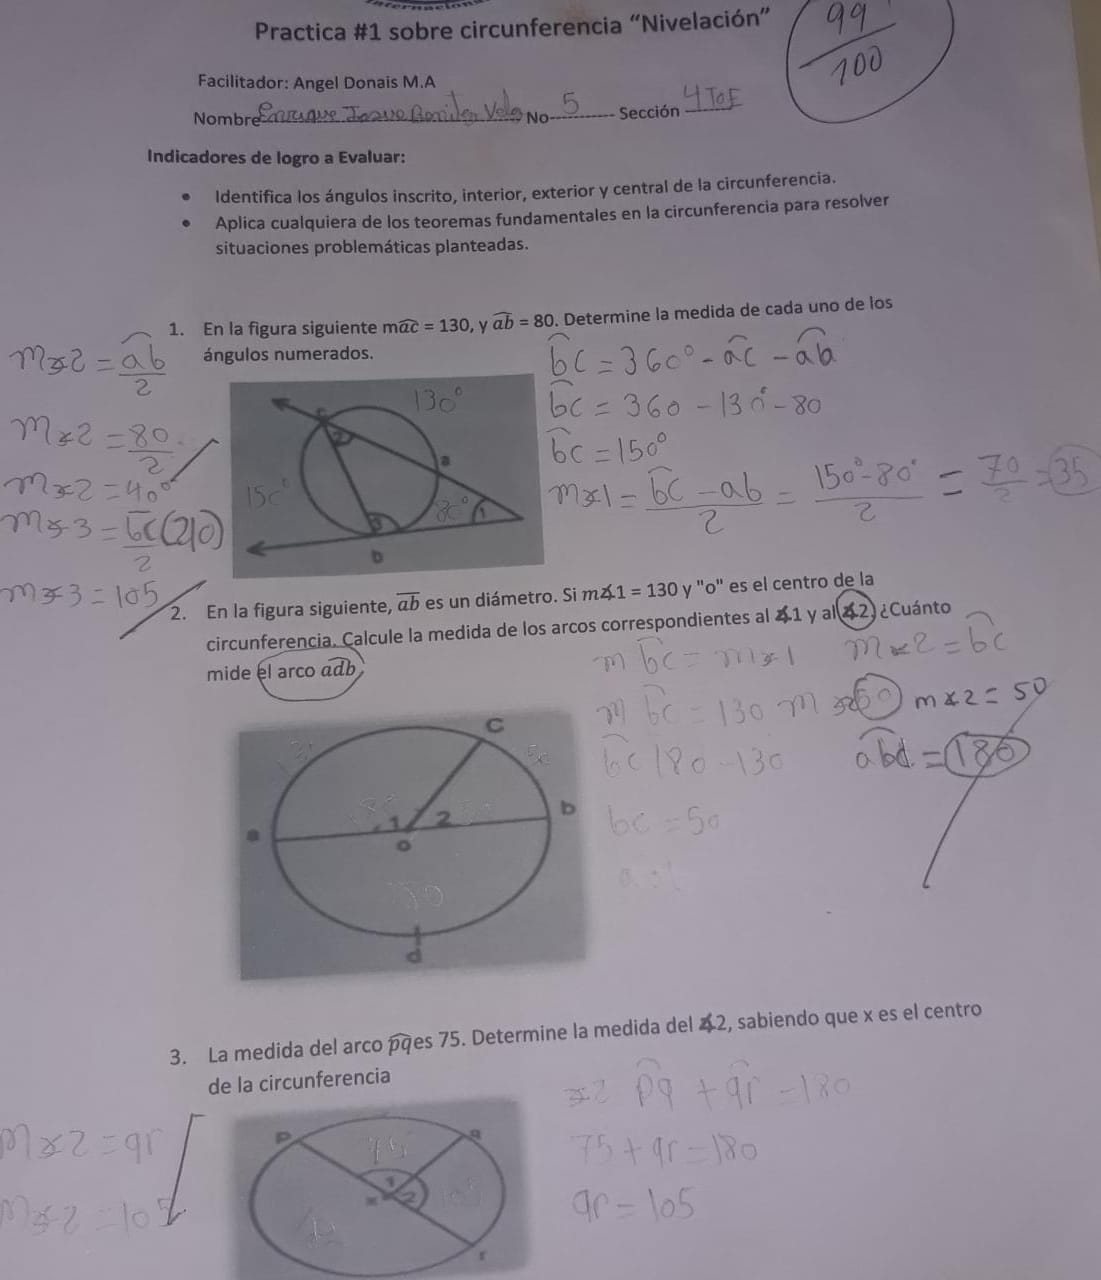 Practica #1 sobre circunferencia “Nivelación”
99
100
Facilitador: Angel Donais M.A
Nombre No 5 Sección
Indicadores de logro a Evaluar:
• Identifica los ángulos inscrito, interior, exterior y central de la circunferencia.
• Aplica cualquiera de los teoremas fundamentales en la circunferencia para resolver
situaciones problemáticas planteadas.
1. En la figura siguiente mac = 130, y ab = 80. Determine la medida de cada uno de los
ángulos numerados.
m∡2 = ab
2
m∡2 = 80
2
m∡2 = 40°
m∡3 = bc (210)
2
m∡3 = 105
bc = 360° - ac - ab
bc = 360 - 130 - 80
bc = 150°
m∡1 = bc - ab = 150° - 80° = 70 = 35
2 2 2
130°
c
2
a
150°
80°
1
3
b
2. En la figura siguiente, ab es un diámetro. Si m∡1 = 130 y "o" es el centro de la
circunferencia. Calcule la medida de los arcos correspondientes al ∡1 y al ∡2 ¿Cuánto
mide el arco adb
m bc = m∡1 m∡2 = bc
m bc = 130 m ∡ 50 m∡2 = 50
bc 180 - 130 abd = 180
bc = 50
C
50
b
a
1 2
o
180
d
3. La medida del arco pq es 75. Determine la medida del ∡2, sabiendo que x es el centro
de la circunferencia
∡2 pq + qr = 180
75 + qr = 180
qr = 105
m∡2 = qr
m∡2 = 105
P
q
75
1
x
2
105
r